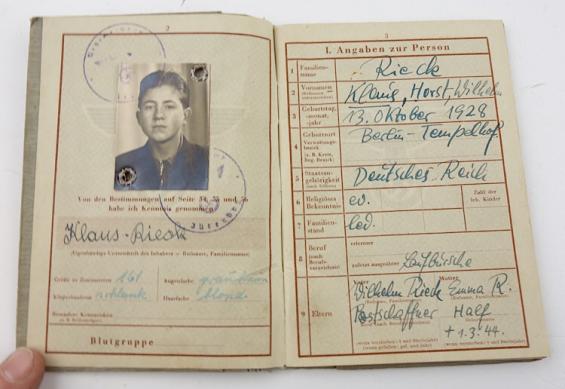 2
Von den Bestimmungen auf Seite 54, 55 und 56
habe ich Kenntnis genommen
Klaus Rieck
(Eigenhändige Unterschrift des Inhabers — Rufname, Familienname)
Größe in Zentimetern 161 Augenfarbe graublau
schlank Haarfarbe blond
Blutgruppe
3
I. Angaben zur Person
1 Familien-
name Rieck
2 Vornamen
Klaus, Horst, Wilhelm
3 Geburtstag,
-monat,
-jahr 13. Oktober 1928
4 Geburtsort Berlin-Tempelhof
Verwaltungs-
bezirk
(z. B. Kreis,
Reg. Bezirk)
5 Staatsan-
gehörigkeit Deutsches Reich
6 Religiöses
Bekenntnis ev. Zahl der
leb. Kinder
7 Familien-
stand led.
8 Beruf erlernter
zuletzt ausgeübter Laufbursche
9 Eltern
Wilhelm Rieck Emma R.
Postschaffner
† 1.3.44.